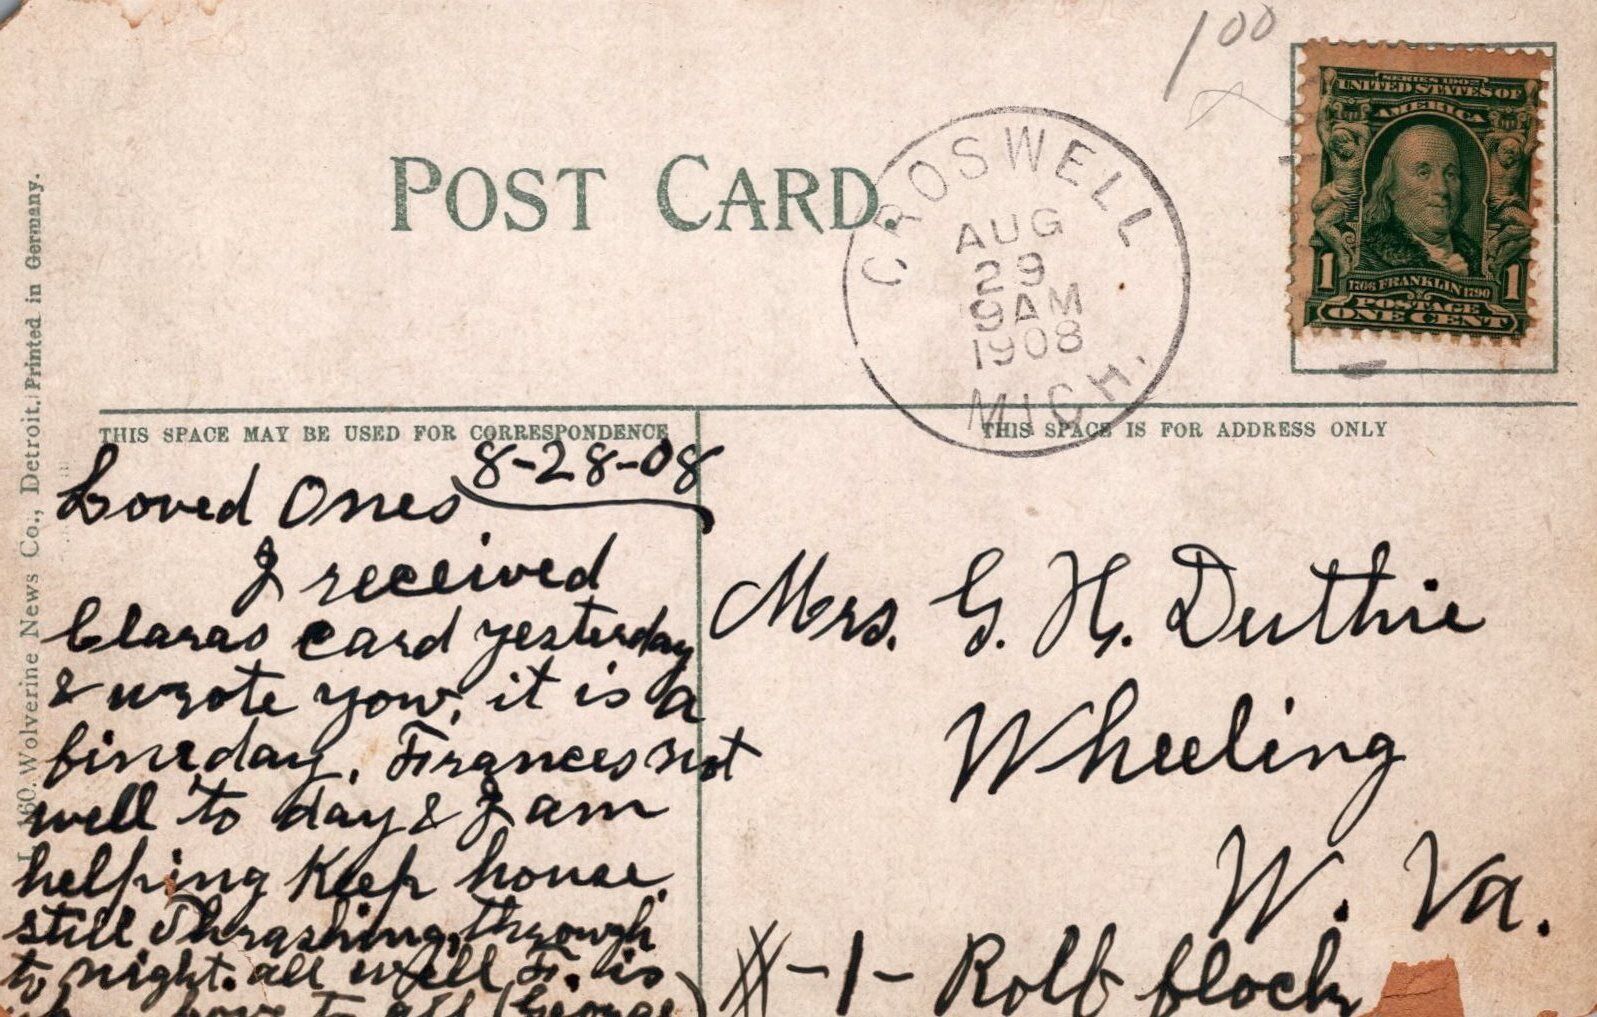 1 00
SERIES 1902
UNITED STATES OF
AMERICA
1 1
1706 FRANKLIN 1790
POSTAGE
ONE CENT
POST CARD.
CROSWELL
AUG
29
9AM
1908
MICH.
THIS SPACE MAY BE USED FOR CORRESPONDENCE
THIS SPACE IS FOR ADDRESS ONLY
8-28-08
Loved Ones
I received
Claras card yesterday
& wrote you, it is a
fine day, Frances not
well to day & I am
helping Keep house.
still Thrashing, through
to night. all well F. is
love to all (George)
Mrs. G. H. Duthie
Wheeling
W. Va.
#-1- Rolf block
160. Wolverine News Co., Detroit. Printed in Germany.